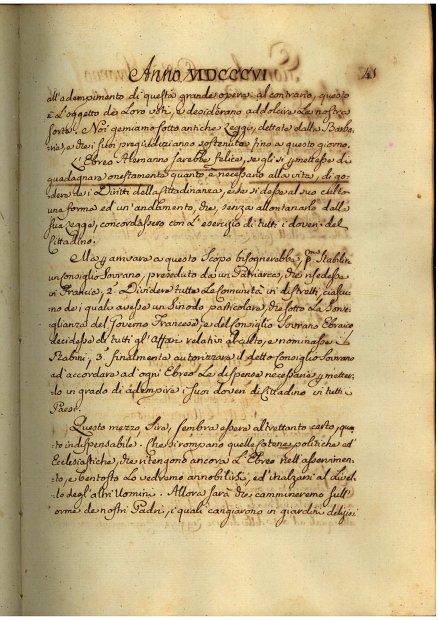 Anno MDCCCVI
41
all'adempimento di questa grande opera: al contrario, questo
è l'oggetto de loro voti, e desiderano addolcire la nostra
sorte. Noi gemiamo sotto antiche Leggi, dettate dalla Barba-
rie, e dei falsi pregiudizi anno sostenuta fino a questo giorno.
L'Ebreo Alemanno sarebbe felice, se gli si permettesse di
guadagnare onestamente quanto è necessario alla vita, di go-
dere de i Diritti della Cittadinanza, e se si desse al suo culto
una forma ed un'andamento, che, senza allontanarlo dalla
sua legge, concordassero con l'esercizio di tutti i doveri del
Cittadino.
Ma per arrivare a questo Scopo bisognerebbe, Pmo Stabilir
un Consiglio Sovrano, preseduto da un Patriarca, che risedesse
in Francia, 2° Dividere tutte le Comunità in distretti, ciascu-
no de i quali avesse un Sinodo particolare, che sotto la Sorve-
glianza del Governo Francese, e del Consiglio Sovrano Ebraico
decidesse di tutti gl'Affari relativi al culto, e nominasse i
Rabini, 3° finalmente autorizzare il detto Consiglio Sovrano
ad accordare ad ogni Ebreo le dispense necessarie per metter-
lo in grado di adempire i suoi doveri di Cittadino in tutti i
Paesi.
Questo mezzo Sire, sembra essere altrettanto certo, quan-
to indispensabile. Che si rompano quelle catene politiche ed
Ecclesiastiche, che ritengono ancora l'Ebreo nell'asservimen-
to, e ben tosto lo vedremo annobilirsi, ed inalzarsi al Livel-
lo degl'altri Uomini. Allora sarà che cammineremo sull'
orme de nostri Padri, i quali cangiarono in giardini deliziosi